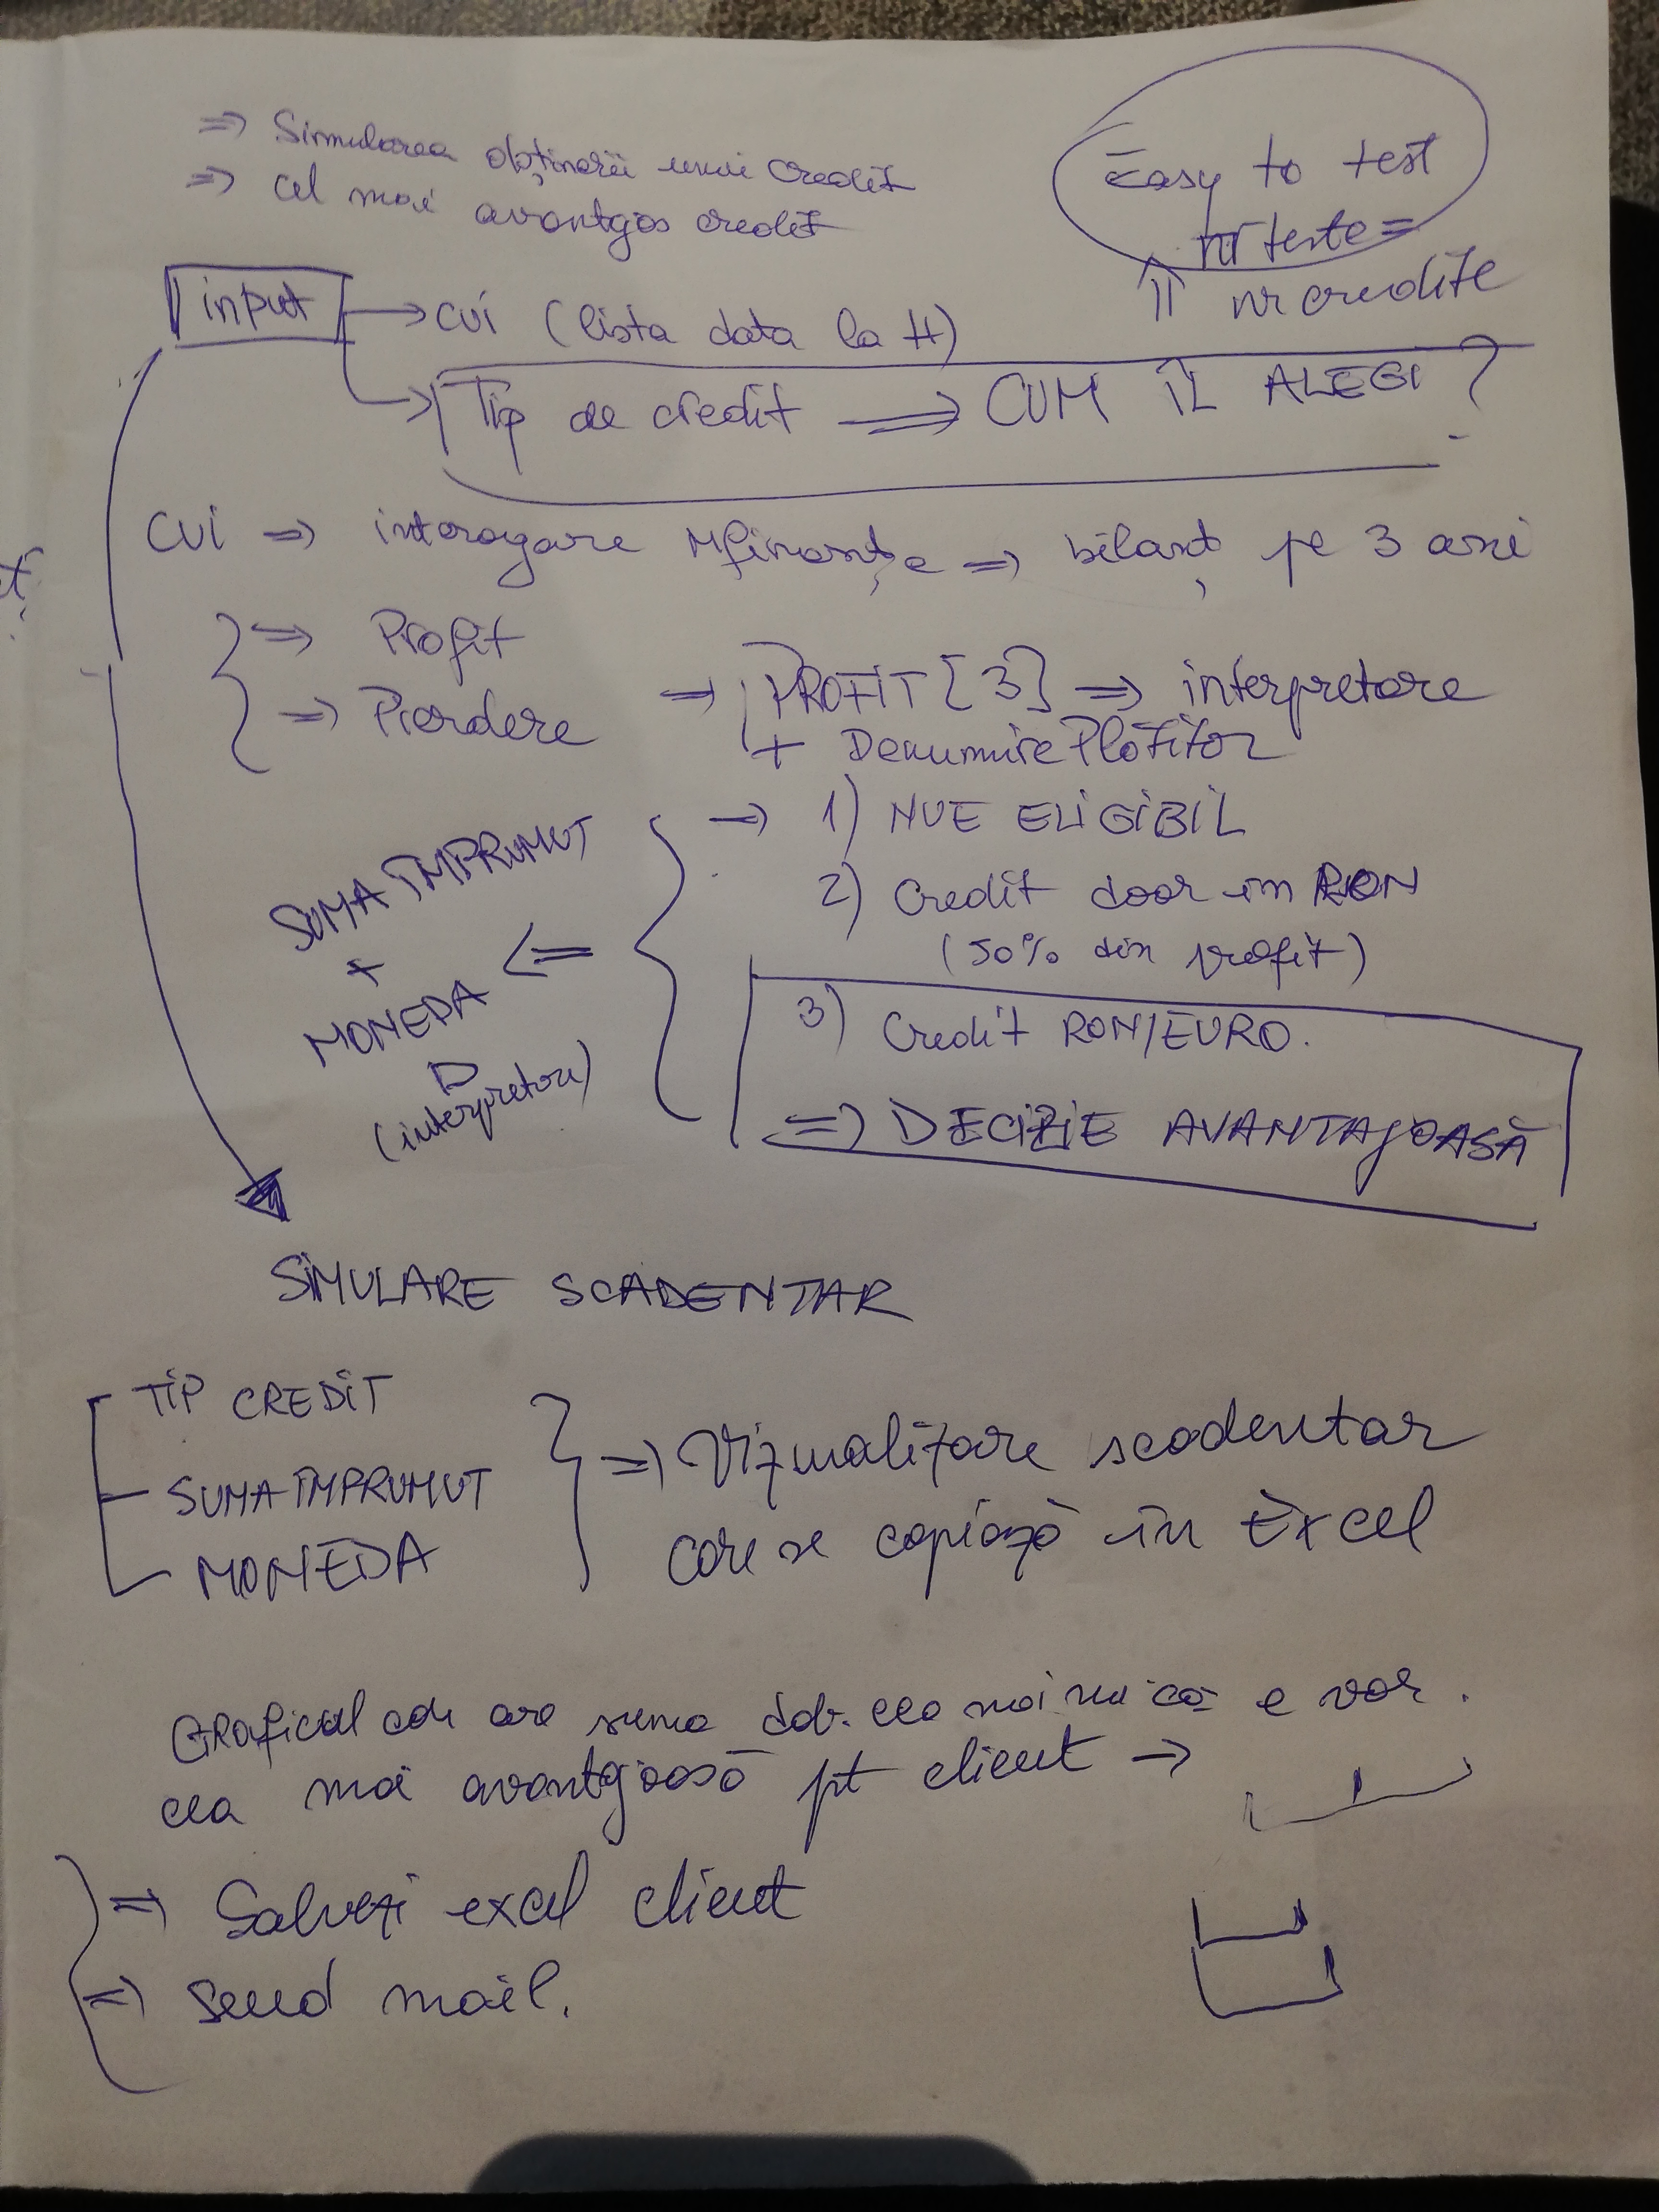 => Simularea obținerii unui credit
=> cel mai avantgos credit
Easy to test
nr teste =
nr credite
input → CUI (lista data la H)
→ Tip de credit => CUM ÎL ALEGI ?
CUI => interogare Mfinanțe => bilanț pe 3 ani
=> Profit
=> Pierdere
=> PROFIT [3] => interpretare
+ Denumire Plătitor
→ 1) NU E ELIGIBIL
2) Credit doar în RON
(50% din profit)
3) Credit RON/EURO.
=> DECIZIE AVANTAJOASĂ
<=
SUMA ÎMPRUMUT
+
MONEDA
(interpretare)
SIMULARE SCADENTAR
TIP CREDIT
SUMA ÎMPRUMUT
MONEDA
=> Vizualizare scadentar
care se copiază în Excel
Graficul care are suma dob. cea mai mică e var.
cea mai avantgioasă pt client →
=> Salvezi excel client
=> Send mail.